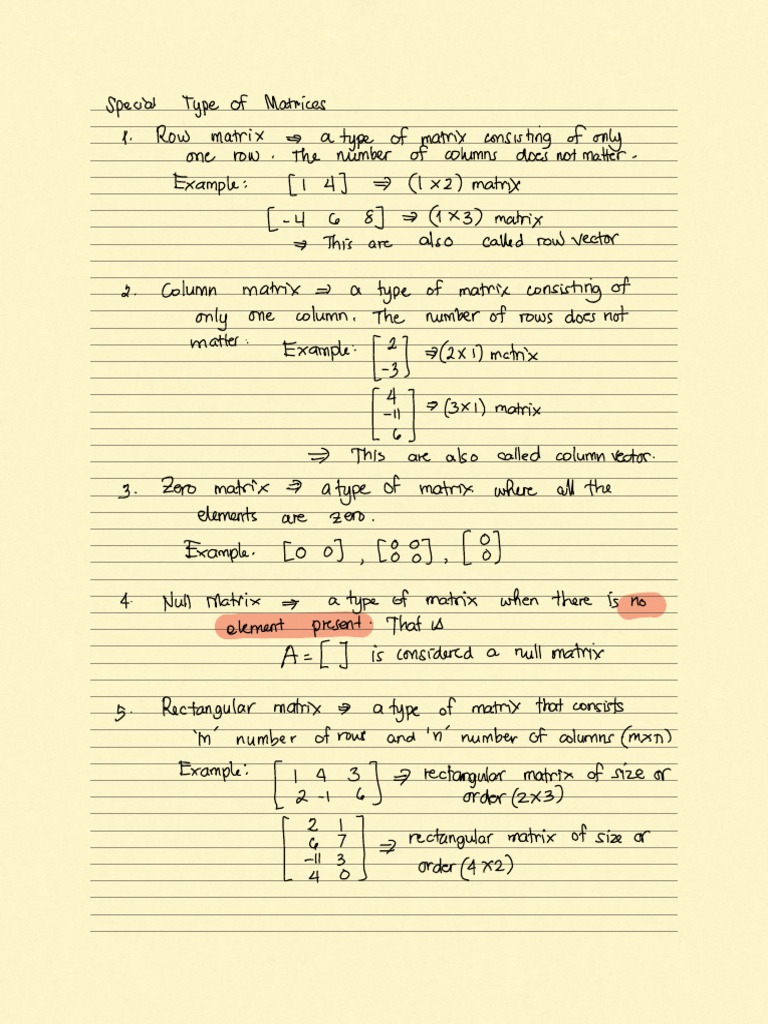 Special Type of Matrices
1. Row matrix ⇒ a type of matrix consisting of only
one row. The number of columns does not matter.
Example: [1 4] ⇒ (1×2) matrix
[-4 6 8] ⇒ (1×3) matrix
⇒ This are also called row vector
2. Column matrix ⇒ a type of matrix consisting of
only one column. The number of rows does not
matter. Example: [2
-3] ⇒ (2×1) matrix
[4
-11
6] ⇒ (3×1) matrix
⇒ This are also called column vector.
3. Zero matrix ⇒ a type of matrix where all the
elements are zero.
Example. [0 0] , [0 0
0 0] , [0
0]
4 Null Matrix ⇒ a type of matrix when there is no
element present. That is
A = [ ] is considered a null matrix
5. Rectangular matrix ⇒ a type of matrix that consists
'm' number of rows and 'n' number of columns (m×n)
Example: [1 4 3
2 -1 6] ⇒ rectangular matrix of size or
order (2×3)
[2 1
6 7
-11 3
4 0] ⇒ rectangular matrix of size or
order (4×2)